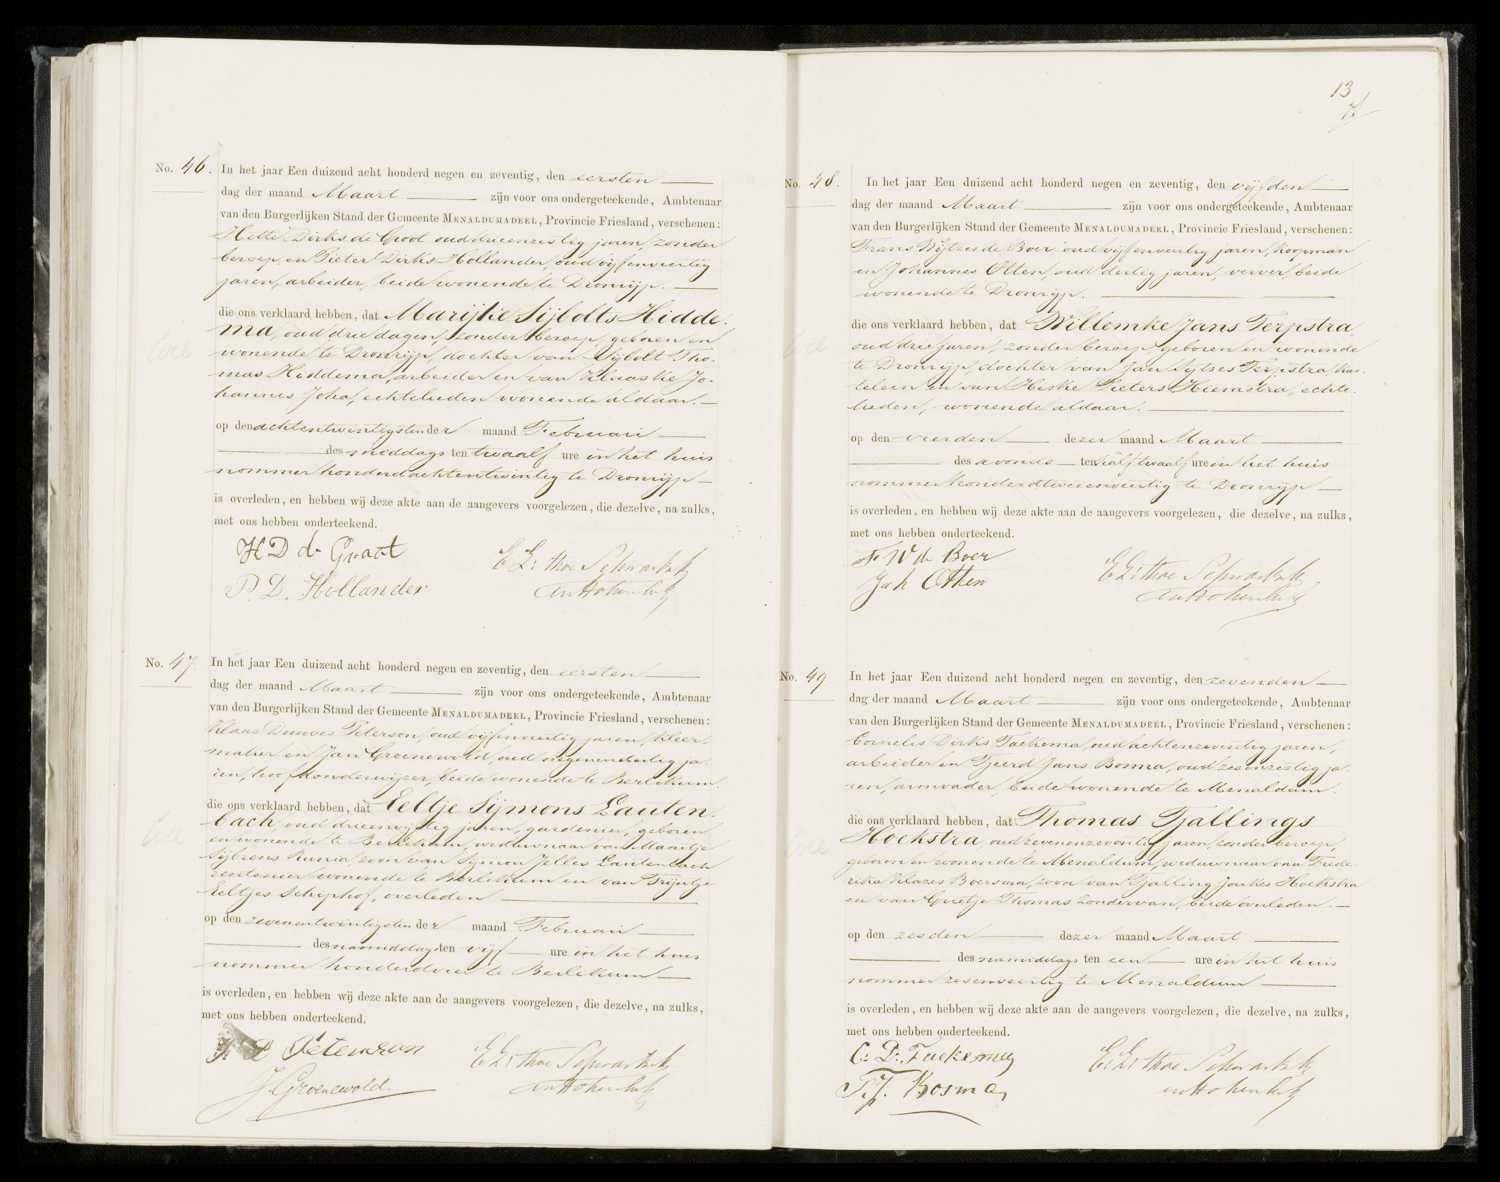 No. 46. In het jaar Een duizend acht honderd negen en zeventig, den eersten
dag der maand Maart zijn voor ons ondergeteekende, Ambtenaar
van den Burgerlijken Stand der Gemeente MENALDUMADEEL, Provincie Friesland, verschenen:
Hette Dirks de Groot oud drieenzestig jaren, zonder
beroep en Pieter Dirks Hollander, oud vijfenveertig
jaren, arbeider, beide wonende te Dronrijp.
die ons verklaard hebben, dat Marijke Sijbolts Hidde-
ma, oud drie dagen, zonder beroep, geboren en
wonende te Dronrijp, dochter van Sijbolt Tho-
mas Hiddema, arbeider en van Klaaske Jo-
hannes Joha, echtelieden wonende aldaar.
op den achtentwintigsten der maand Februari
des middags ten twaalf ure in het huis
nommer honderdachtentwintig te Dronrijp
is overleden, en hebben wij deze akte aan de aangevers voorgelezen, die dezelve, na zulks,
met ons hebben onderteekend.
H D de Groot
P. D. Hollander
E. L. thoe Schwartzb
en Hohenlb
No. 47 In het jaar Een duizend acht honderd negen en zeventig, den eersten
dag der maand Maart zijn voor ons ondergeteekende, Ambtenaar
van den Burgerlijken Stand der Gemeente MENALDUMADEEL, Provincie Friesland, verschenen:
Klaas Douwes Peterson, oud vijfenveertig jaren, kleer-
maker en Jan Groenewold, oud negenendertig ja-
ren, hoofdonderwijzer, beide wonende te Berlikum.
die ons verklaard hebben, dat Eeltje Sijmons Lauten-
bach, oud drieenvijftig jaren, gardenier, geboren
en wonende te Berlikum, weduwnaar van Maartje
Sijbrens Runia, zoon van Sijmon Jelles Lautenbach
rentenier wonende te Berlikum en van Trijntje
Eeltjes Schiphof, overleden
op den zevenentwintigsten der maand Februari
des namiddags ten vijf ure in het huis
nommer honderdvier te Berlikum
is overleden, en hebben wij deze akte aan de aangevers voorgelezen, die dezelve, na zulks,
met ons hebben onderteekend.
K D Peterson
J Groenewold.
E. L. thoe Schwartzb
en Hohenlb
13
No. 48. In het jaar Een duizend acht honderd negen en zeventig, den vijfden
dag der maand Maart zijn voor ons ondergeteekende, Ambtenaar
van den Burgerlijken Stand der Gemeente MENALDUMADEEL, Provincie Friesland, verschenen:
Frans Wijtzes de Boer, oud vijfenveertig jaren, koopman
en Johannes Otten, oud dertig jaren, verver, beide
wonende te Dronrijp.
die ons verklaard hebben, dat Willemke Jans Terpstra
oud drie jaren, zonder beroep, geboren en wonende
te Dronrijp, dochter van Jan Sytses Terpstra, kas-
telein en van Hiske Pieters Hiemstra, echte-
lieden, wonende aldaar.
op den vierden dezer maand Maart
des avonds ten half twaalf ure in het huis
nommer honderdtweeenveertig te Dronrijp
is overleden, en hebben wij deze akte aan de aangevers voorgelezen, die dezelve, na zulks,
met ons hebben onderteekend.
F. W de Boer
Joh Otten
E. L. thoe Schwartzb
en Hohenlb
No. 49 In het jaar Een duizend acht honderd negen en zeventig, den zevenden
dag der maand Maart zijn voor ons ondergeteekende, Ambtenaar
van den Burgerlijken Stand der Gemeente MENALDUMADEEL, Provincie Friesland, verschenen:
Cornelis Dirks Faekema, oud achtenzeventig jaren,
arbeider en Tjeerd Jans Bosma, oud zesenzestig ja-
ren, armvader, beide wonende te Menaldum.
die ons verklaard hebben, dat Thomas Tjallings
Hoekstra oud zevenenzeventig jaren, zonder beroep,
geboren en wonende te Menaldum, weduwnaar van Frede-
rika Klazes Boersma, zoon van Tjalling Jankes Hoekstra
en van Grietje Thomas Zondervan, beide overleden.
op den zesden dezer maand Maart
des namiddags ten een ure in het huis
nommer zesenveertig te Menaldum
is overleden, en hebben wij deze akte aan de aangevers voorgelezen, die dezelve, na zulks,
met ons hebben onderteekend.
C. D. Faekema
T. J. Bosma
E. L. thoe Schwartzb
en Hohenlb